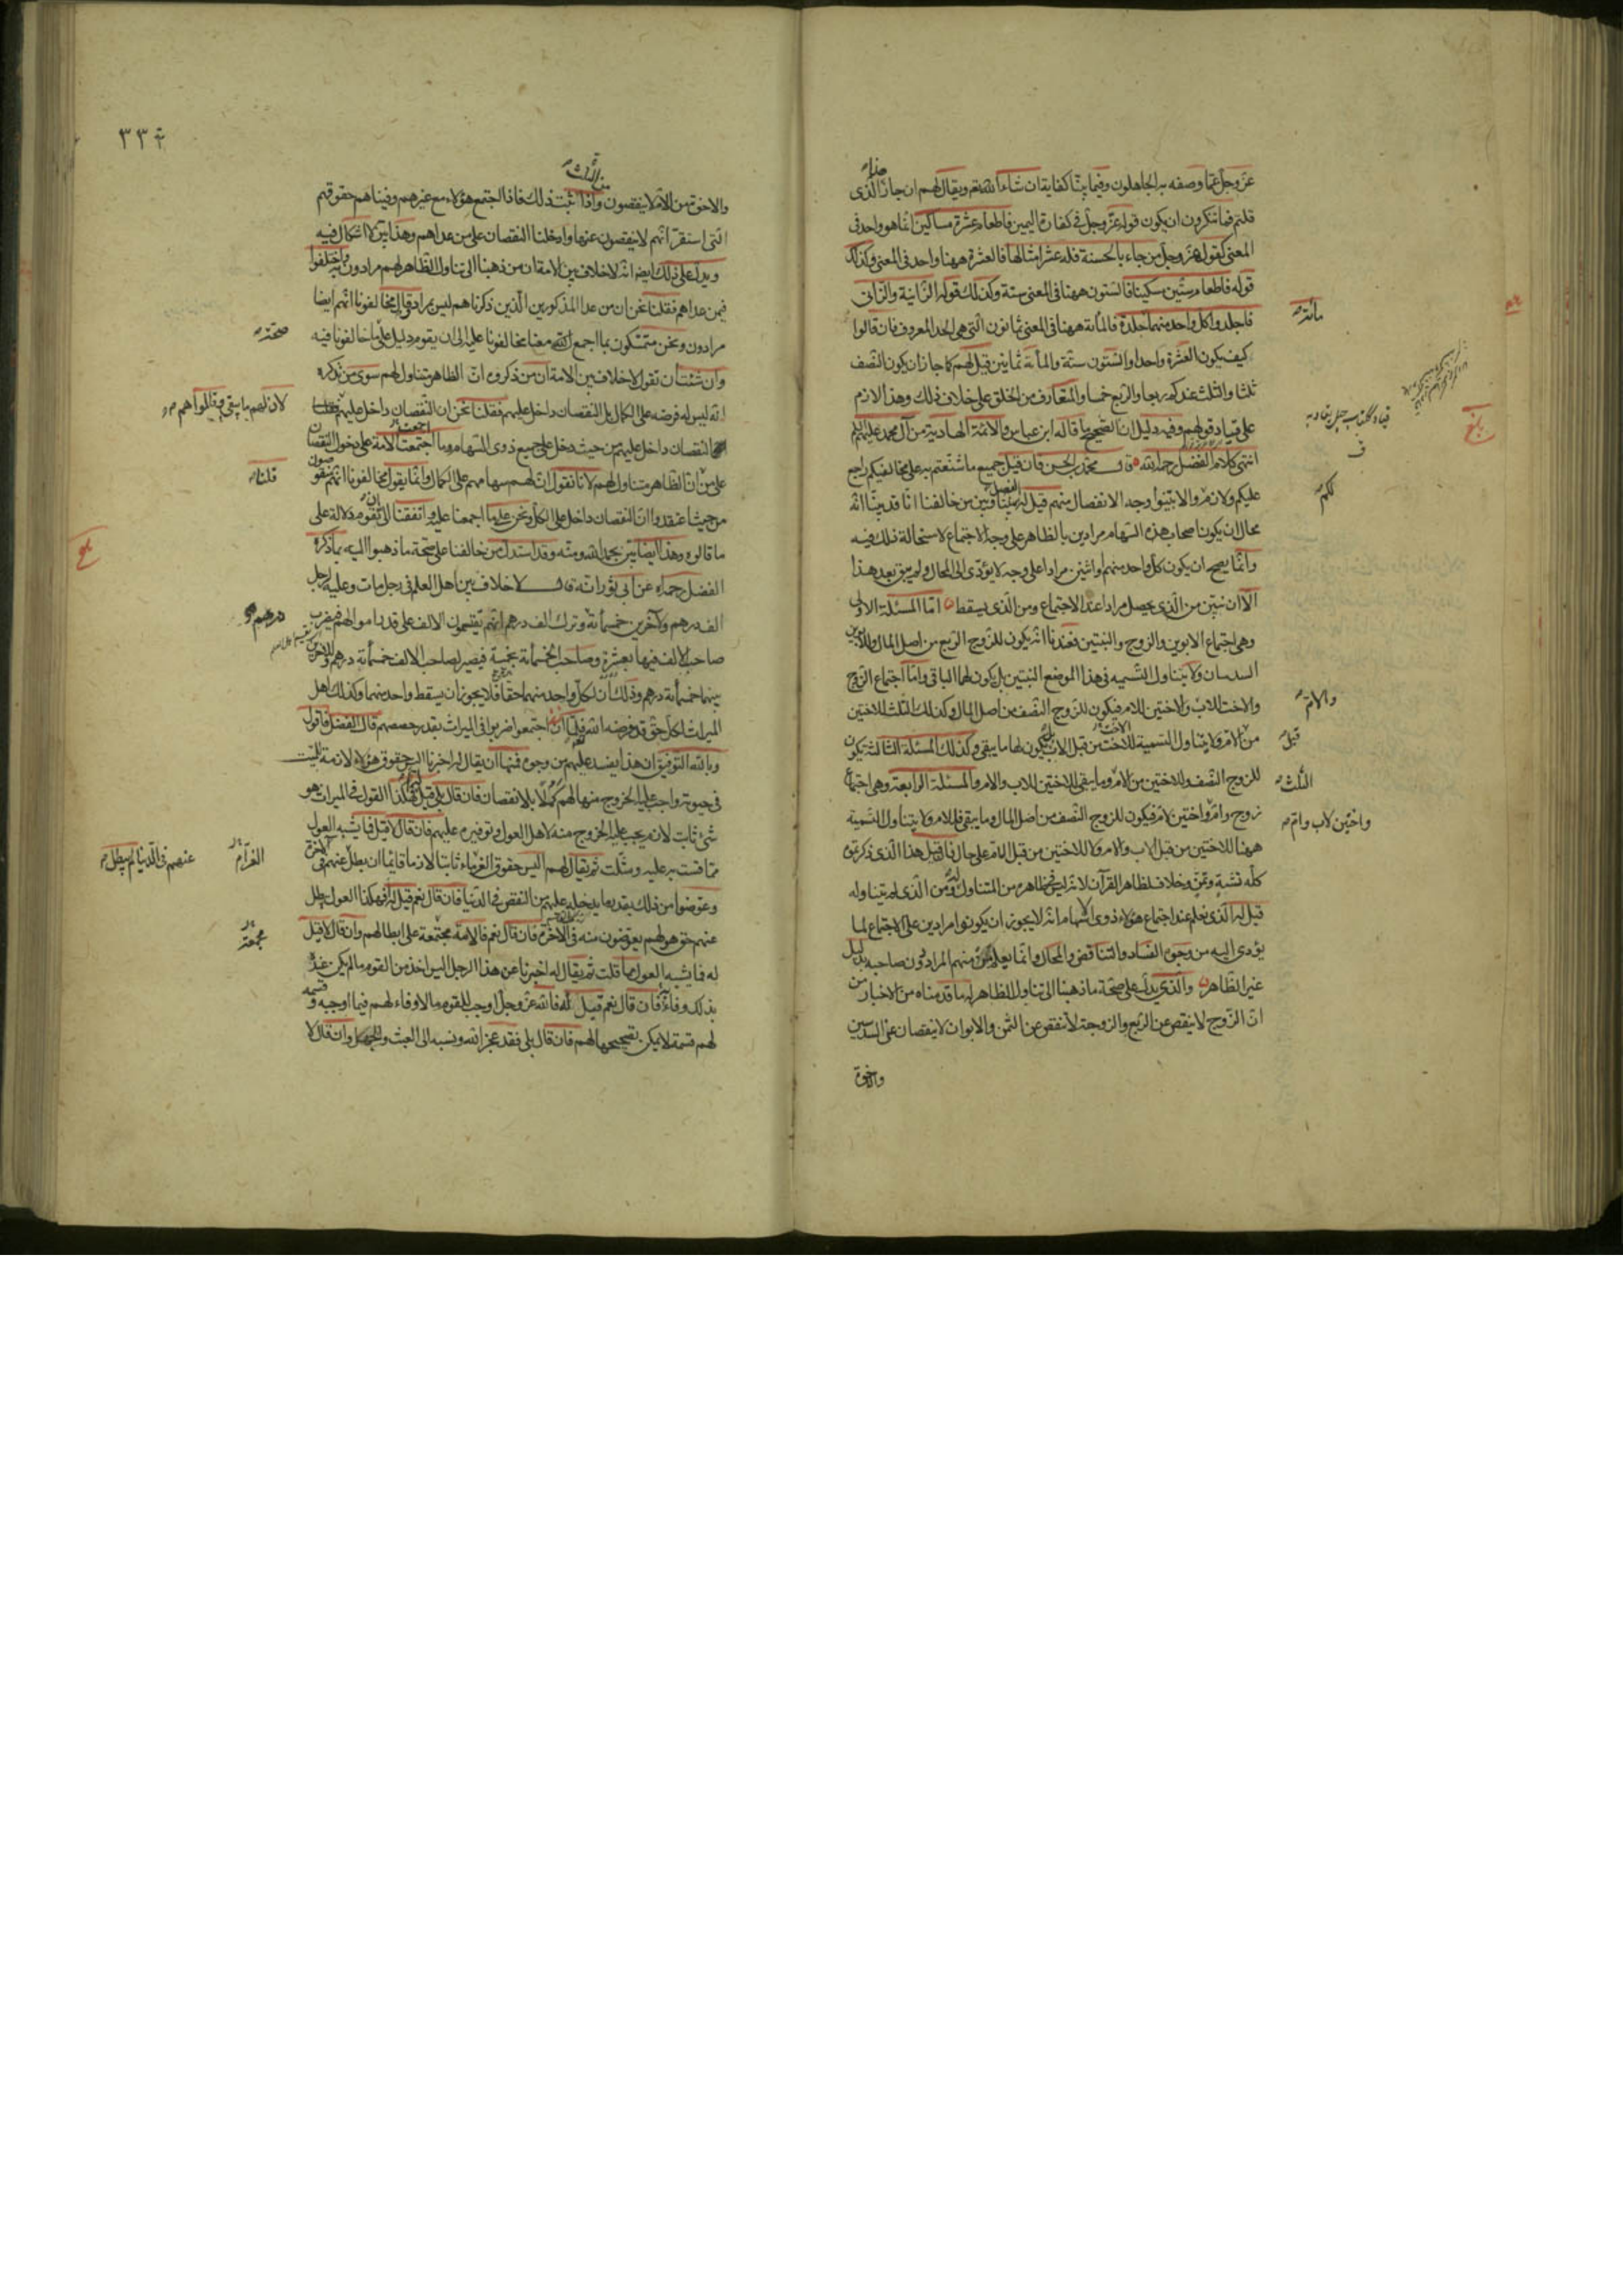 عزّ وجلّ عمّا وصفه به الجاهلون وفيما بيّنا كفاية ان شاء الله تع ويقال لهم ان جاز هذا الذى
قلتم فما تنكرون ان يكون قوله عزّ وجلّ فى كفارة اليمين فاطعام عشرة مساكين انما هو واحد فى
المعنى كقوله عزّ وجلّ من جاء بالحسنة فله عشر امثالها فالعشرة ههنا واحد فى المعنى وكذلك
قوله فاطعام ستّين مسكينا فالستون ههنا فى المعنى ستة وكذلك قوله الزّانية والزّانى
فاجلدوا كل واحد منهما مائة جلدة فالمائة ههنا فى المعنى ثمانون الّتى هى الحد المعروف فان قالوا
كيف يكون العشرة واحدا والستون ستّة والمائة ثمانين قيل لهم كما جاز ان يكون النّصف
ثلثا والثلث عندكم ربعا والرّبع خمسا والمتعارف من الخلق على خلاف ذلك وهذا لازم
على قياد قولهم وفيه دليل ان الصّحيح ما قاله ابن عباس والائمّة الهادية من آل محمد عليهم السلم
انتهى كلام الفضل رحمه الله قال محمّد بن الحسن فان قيل جميع ما شنّعتم به على مخالفيكم راجع
عليكم ولازم لكم والا بيّنوا وجه الانفصال منهم قيل له الفصل بيننا وبين من خالفنا انّا قد بيّنّا انّه
محال ان يكون اصحاب هذه السّهام مرادين بالظاهر على وجه الاجتماع لاستحالة ذلك فيه
وانّما يصح ان يكون كل واحد منهم او اثنين مرادا على وجه لا يؤدّى الى المحال ولم يبق بعد هذا
الّا ان نبيّن من الّذى يحصل مرادا عند الاجتماع ومن الّذى يسقط امّا المسئلة الاولى
وهى اجتماع الابوين والزوج والبنتين فعندنا انّه يكون للزوج الرّبع من اصل المال وللابوين
السدسان ولا يتناول التّسمية فى هذا الموضع البنتين بل يكون لهما الباقى وامّا اجتماع الزّوج
والاخت للاب والام والاختين للام فيكون للزوج النّصف من اصل المال وكذلك الثلث للاختين
من قبل الام ولا يتناول التسمية للاخت من قبل الاب بل يكون لها ما يبقى وكذلك المسئلة الثالثة يكون
للزوج النّصف وللاختين من الام الثلث وما يبقى للاختين للاب والام والمسئلة الرّابعة وهى اجتماع
زوج وام واختين لام واختين لاب وام فيكون للزوج النّصف من اصل المال وما يبقى فللام ولا يتناول التّسمية
ههنا للاختين من قبل الاب والام ولا للاختين من قبل الام على حال فان قيل هذا الّذى ذكرتموه
كلّه تشبّه وتمنّ وخلاف لظاهر القرآن لانه ليس فى ظاهره من المتناول له ومن الّذى لم يتناوله
قيل له الّذى نعلم عند اجتماع هؤلاء ذوى السّهام انّه لا يجوز ان يكونوا مرادين على الاجتماع لما
يؤدى اليه من وجوه الفساد والتناقض والمحال وانّما يعلم من منهم المراد دون صاحبه بدليل
غير الظاهر والّذى يدلّ على صحّة ما ذهبنا الى تناول الظاهر له ما قدمناه من الاخبار من
انّ الزّوج لا ينقص عن الرّبع والزوجة لا تنقص عن الثّمن والابوان لا ينقصان عن السدسين
والاخوة
٣٣٤
والاخوة من الام لا ينقصون من الثلث واذا ثبت ذلك فاذا اجتمع هؤلاء مع غيرهم وفيناهم حقوقهم
الّتى استقرّ انّهم لا ينقصون عنها وادخلنا النقصان على من عداهم وهذا بيّن لا اشكال فيه
ويدلّ على ذلك ايضا انّه لا خلاف بين الامة ان من ذهبنا الى تناول الظاهر لهم مرادون به واختلفوا
فيمن عداهم فقلنا نحن ان من عدا المذكورين الّذين ذكرناهم ليس بمراد وقال مخالفونا انّهم ايضا
مرادون ونحن متمسّكون بما اجمع معنا مخالفونا عليه الى ان يقوم دليل على صحّة ما خالفونا فيه
وان شئت ان تقول لا خلاف بين الامة ان من ذكروه انّ الظاهر متناول لهم سوى من نذكره
انّه ليس له فرضه على الكمال بل النقصان داخل عليهم فقلنا نحن ان النّقصان داخل عليهم لان لهم ما يبقى وقالوا هم
النقصان داخل عليهم من حيث دخل على جميع ذوى السّهام وما اجتمعت الامة على دخول النقصان
على من قلنا انّ الظاهر متناول لهم لانا نقول انّ لهم سهامهم على الكمال وانّما يقول مخالفونا انّهم منقوصون
من حيث اعتقدوا انّ النقصان داخل على الكلّ ونحن على ما اجمعنا عليه واتفقنا الى ان تقوم دلالة على
ما قالوه وهذا ايضا بيّن بحمد الله ومنّه وقد استدلّ من خالفنا على صحّة ما ذهبوا اليه بما ذكره
الفضل رحمه الله عن ابى ثور انّه قال لا خلاف بين اهل العلم فى رجل مات وعليه لرجل
الف درهم ولآخرين خمسمائة وترك الف درهم انّهم يقتسمون الالف على قدر اموالهم فيضرب
صاحب الالف فيها بعشرة وصاحب الخمسمائة بخمسة فيصير لصاحب الالف خمسمائة درهم وللآخرين
بينهما خمسمائة درهم وذلك انّ لكلّ واحد منهما حقا فلا يجوز ان يسقط واحد منهما وكذلك اهل
الميراث لكلّ حقّ قد فرضه الله فلمّا ان اجتمعوا ضربوا فى الميراث بقدر حصصهم قال الفضل فاقول
وبالله التوفيق ان هذا يفسد عليهم من وجوه فمنها ان يقال له اخبرنا اليس حقوق هؤلاء لازمة للميّت
فى حيوته واجب عليه الخروج منها لهم كملا بلا نقصان فان قال بلى قيل افهكذا القول فى الميراث هو
شئ ثابت لانه يجب عليه الخروج منه لاهل العول وتوفيره عليهم فان قال لا قيل فما يشبه العول
مما قست به عليه ومثّلت ثم يقال لهم اليس حقوق الغرماء ثابتا لازما قائما ان بطل عنهم فى الدّنيا لم يبطل عنهم فى الآخرة
وعوّضوا من ذلك بقدر ما يدخل عليهم من النقص فى الدّنيا فان قال نعم قيل له افهكذا العول بطل
عنهم حق هو لهم يعوّضون منه فى الآخرة فان قال نعم فالامة مجتمعة على ابطالهم وان قال لا قيل
له فما يشبه العول ما قلت ثم يقال له اخبرنا عن هذا الرجل اليس اخذ من القوم ما لم يكن عنده
بذلك وفاء فان قال نعم قيل له فالله عزّ وجلّ اوجب للقوم ما لا وفاء لهم فيما اوجبه وقسمه
لهم قسمة لا يمكن تصحيحها لهم فان قال بلى فقد عجز الله ونسبه الى العبث والجهل وان قال لا